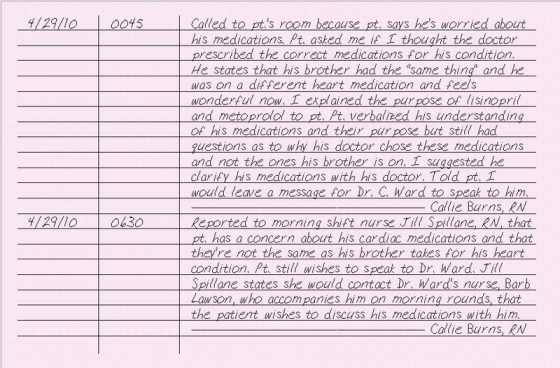 4/29/10 0045 Called to pt.'s room because pt. says he's worried about
his medications. Pt. asked me if I thought the doctor
prescribed the correct medications for his condition.
He states that his brother had the "same thing" and he
was on a different heart medication and feels
wonderful now. I explained the purpose of lisinopril
and metoprolol to pt. Pt. verbalized his understanding
of his medications and their purpose but still had
questions as to why his doctor chose these medications
and not the ones his brother is on. I suggested he
clarify his medications with his doctor. Told pt. I
would leave a message for Dr. C. Ward to speak to him.
Callie Burns, RN
4/29/10 0630 Reported to morning shift nurse Jill Spillane, RN, that
pt. has a concern about his cardiac medications and that
they're not the same as his brother takes for his heart
condition. Pt. still wishes to speak to Dr. Ward. Jill
Spillane states she would contact Dr. Ward's nurse, Barb
Lawson, who accompanies him on morning rounds, that
the patient wishes to discuss his medications with him.
Callie Burns, RN